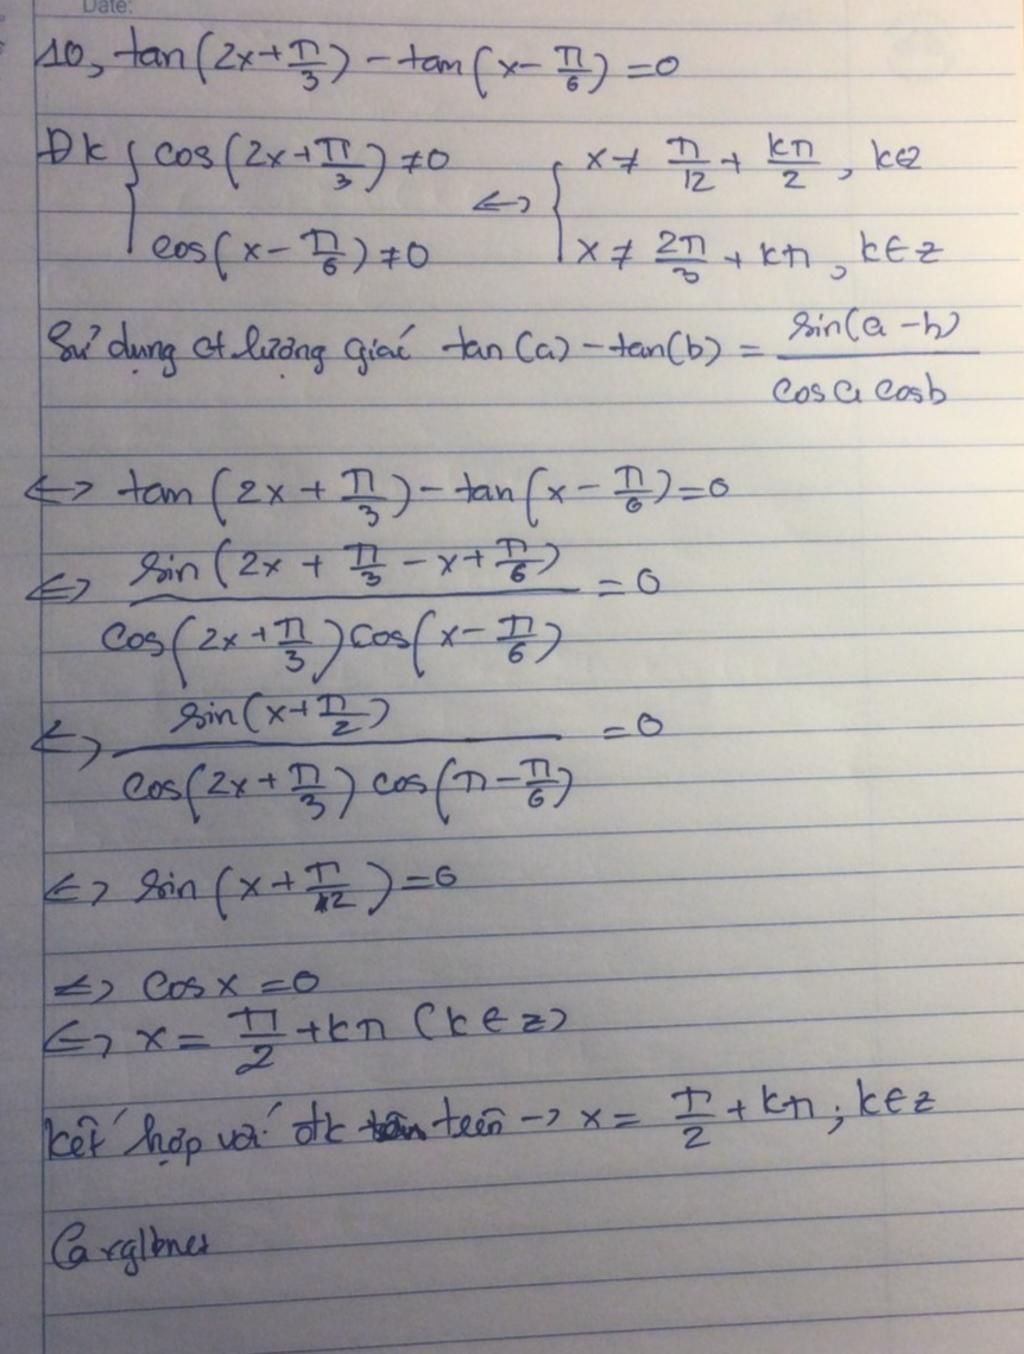 Date:
10, tan(2x+π/3) - tan(x-π/6) = 0
Đk { cos(2x+π/3) ≠ 0 <=> { x ≠ π/12 + kπ/2, k∈Z
cos(x-π/6) ≠ 0 x ≠ 2π/3 + kπ, k∈Z
Sử dụng ct lượng giác tan(a) - tan(b) = sin(a-b)/cosa cosb
<=> tan(2x+π/3) - tan(x-π/6) = 0
<=> sin(2x+π/3-x+π/6)/cos(2x+π/3)cos(x-π/6) = 0
<=> sin(x+π/2)/cos(2x+π/3)cos(π-π/6) = 0
<=> sin(x+π/2) = 0
<=> cosx = 0
<=> x = π/2 + kπ (k∈Z)
kết hợp với đk trên -> x = π/2 + kπ; k∈Z